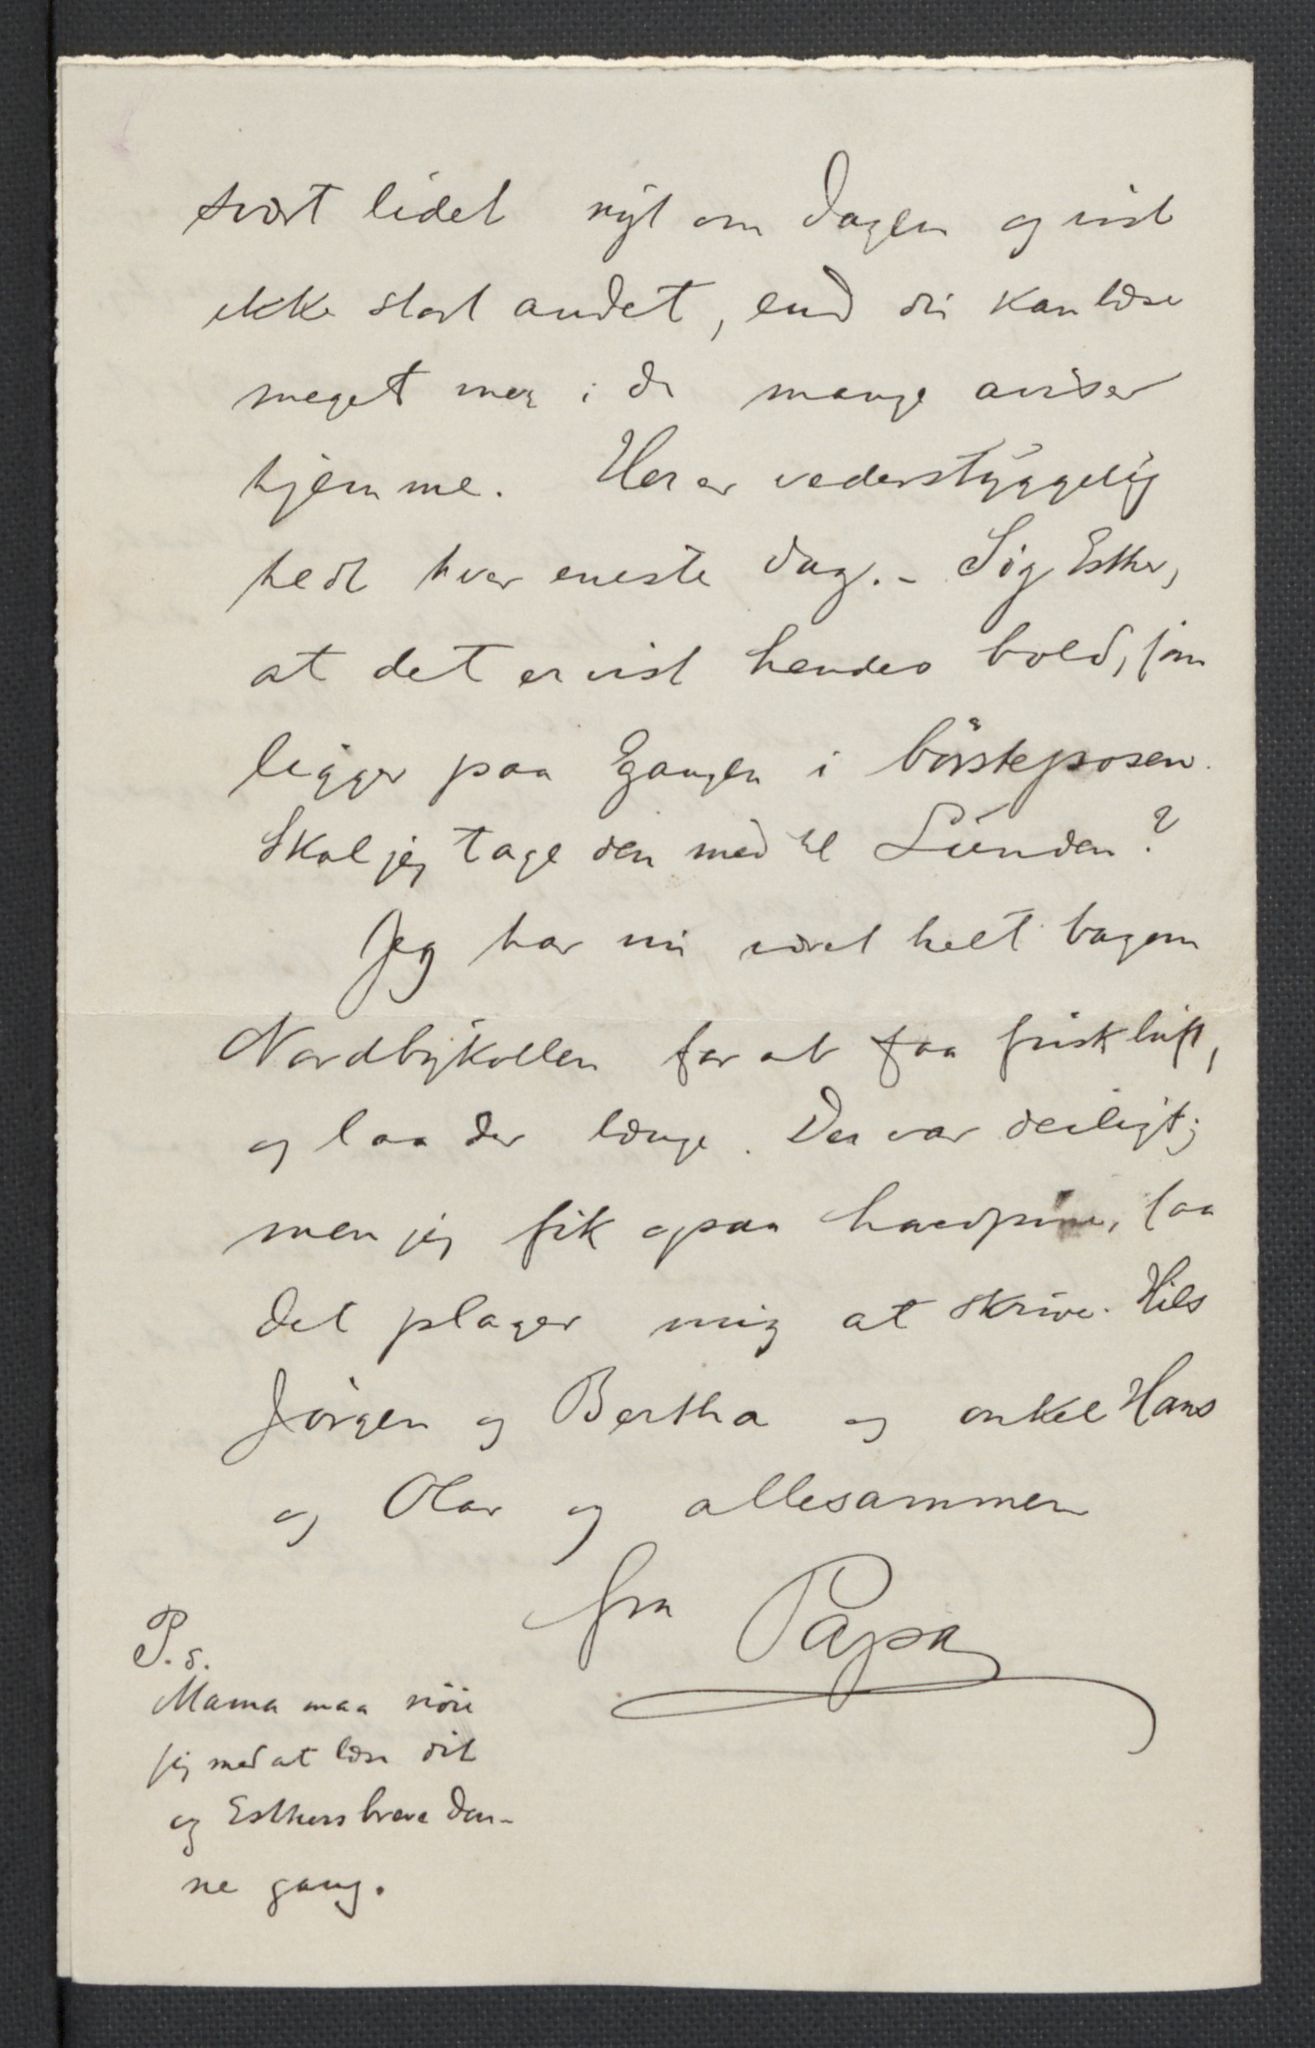 svært lidet nyt om dagen og vist
ikke stort andet, end du kan læse
meget mer i de mange aviser
hjemme. Her er vederstyggelig
hedt hver eneste dag. – Sig Esther,
at det er vist hendes bold, som
ligger paa Gangen i börsteposen.
Skal jeg tage den med til Lunden?
Jeg har nu været helt bagom
Nordbykollen for at faa frisk luft,
og laa der længe. Der var deiligt;
men jeg fik ogsaa hovedpine, saa
det plager mig at skrive. Hils
Jörgen og Bertha og onkel Hans
og Olav og allesammen
fra Papa
P.s.
Mama maa nöie
sig med at læse dit
og Esthers breve den-
ne gang.